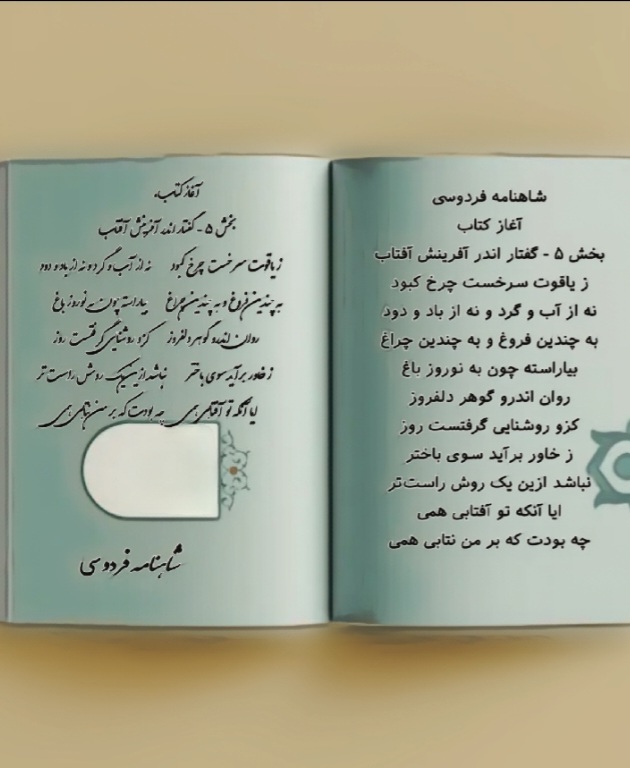 شاهنامه فردوسی
آغاز کتاب
بخش ۵ - گفتار اندر آفرینش آفتاب
ز یاقوت سرخست چرخ کبود
نه از آب و گرد و نه از باد و دود
به چندین فروغ و به چندین چراغ
بیاراسته چون به نوروز باغ
روان اندرو گوهر دلفروز
کزو روشنایی گرفتست روز
ز خاور برآید سوی باختر
نباشد ازین یک روش راست‌تر
ایا آنکه تو آفتابی همی
چه بودت که بر من نتابی همی
آغاز کتاب
بخش ۵ - گفتار اندر آفرینش آفتاب
ز یاقوت سرخست چرخ کبود نه از آب و گرد و نه از باد و دود
به چندین فروغ و به چندین چراغ بیاراسته چون به نوروز باغ
روان اندرو گوهر دلفروز کزو روشنایی گرفتست روز
ز خاور برآید سوی باختر نباشد ازین یک روش راست‌تر
ایا آنکه تو آفتابی همی چه بودت که بر من نتابی همی
شاهنامه فردوسی